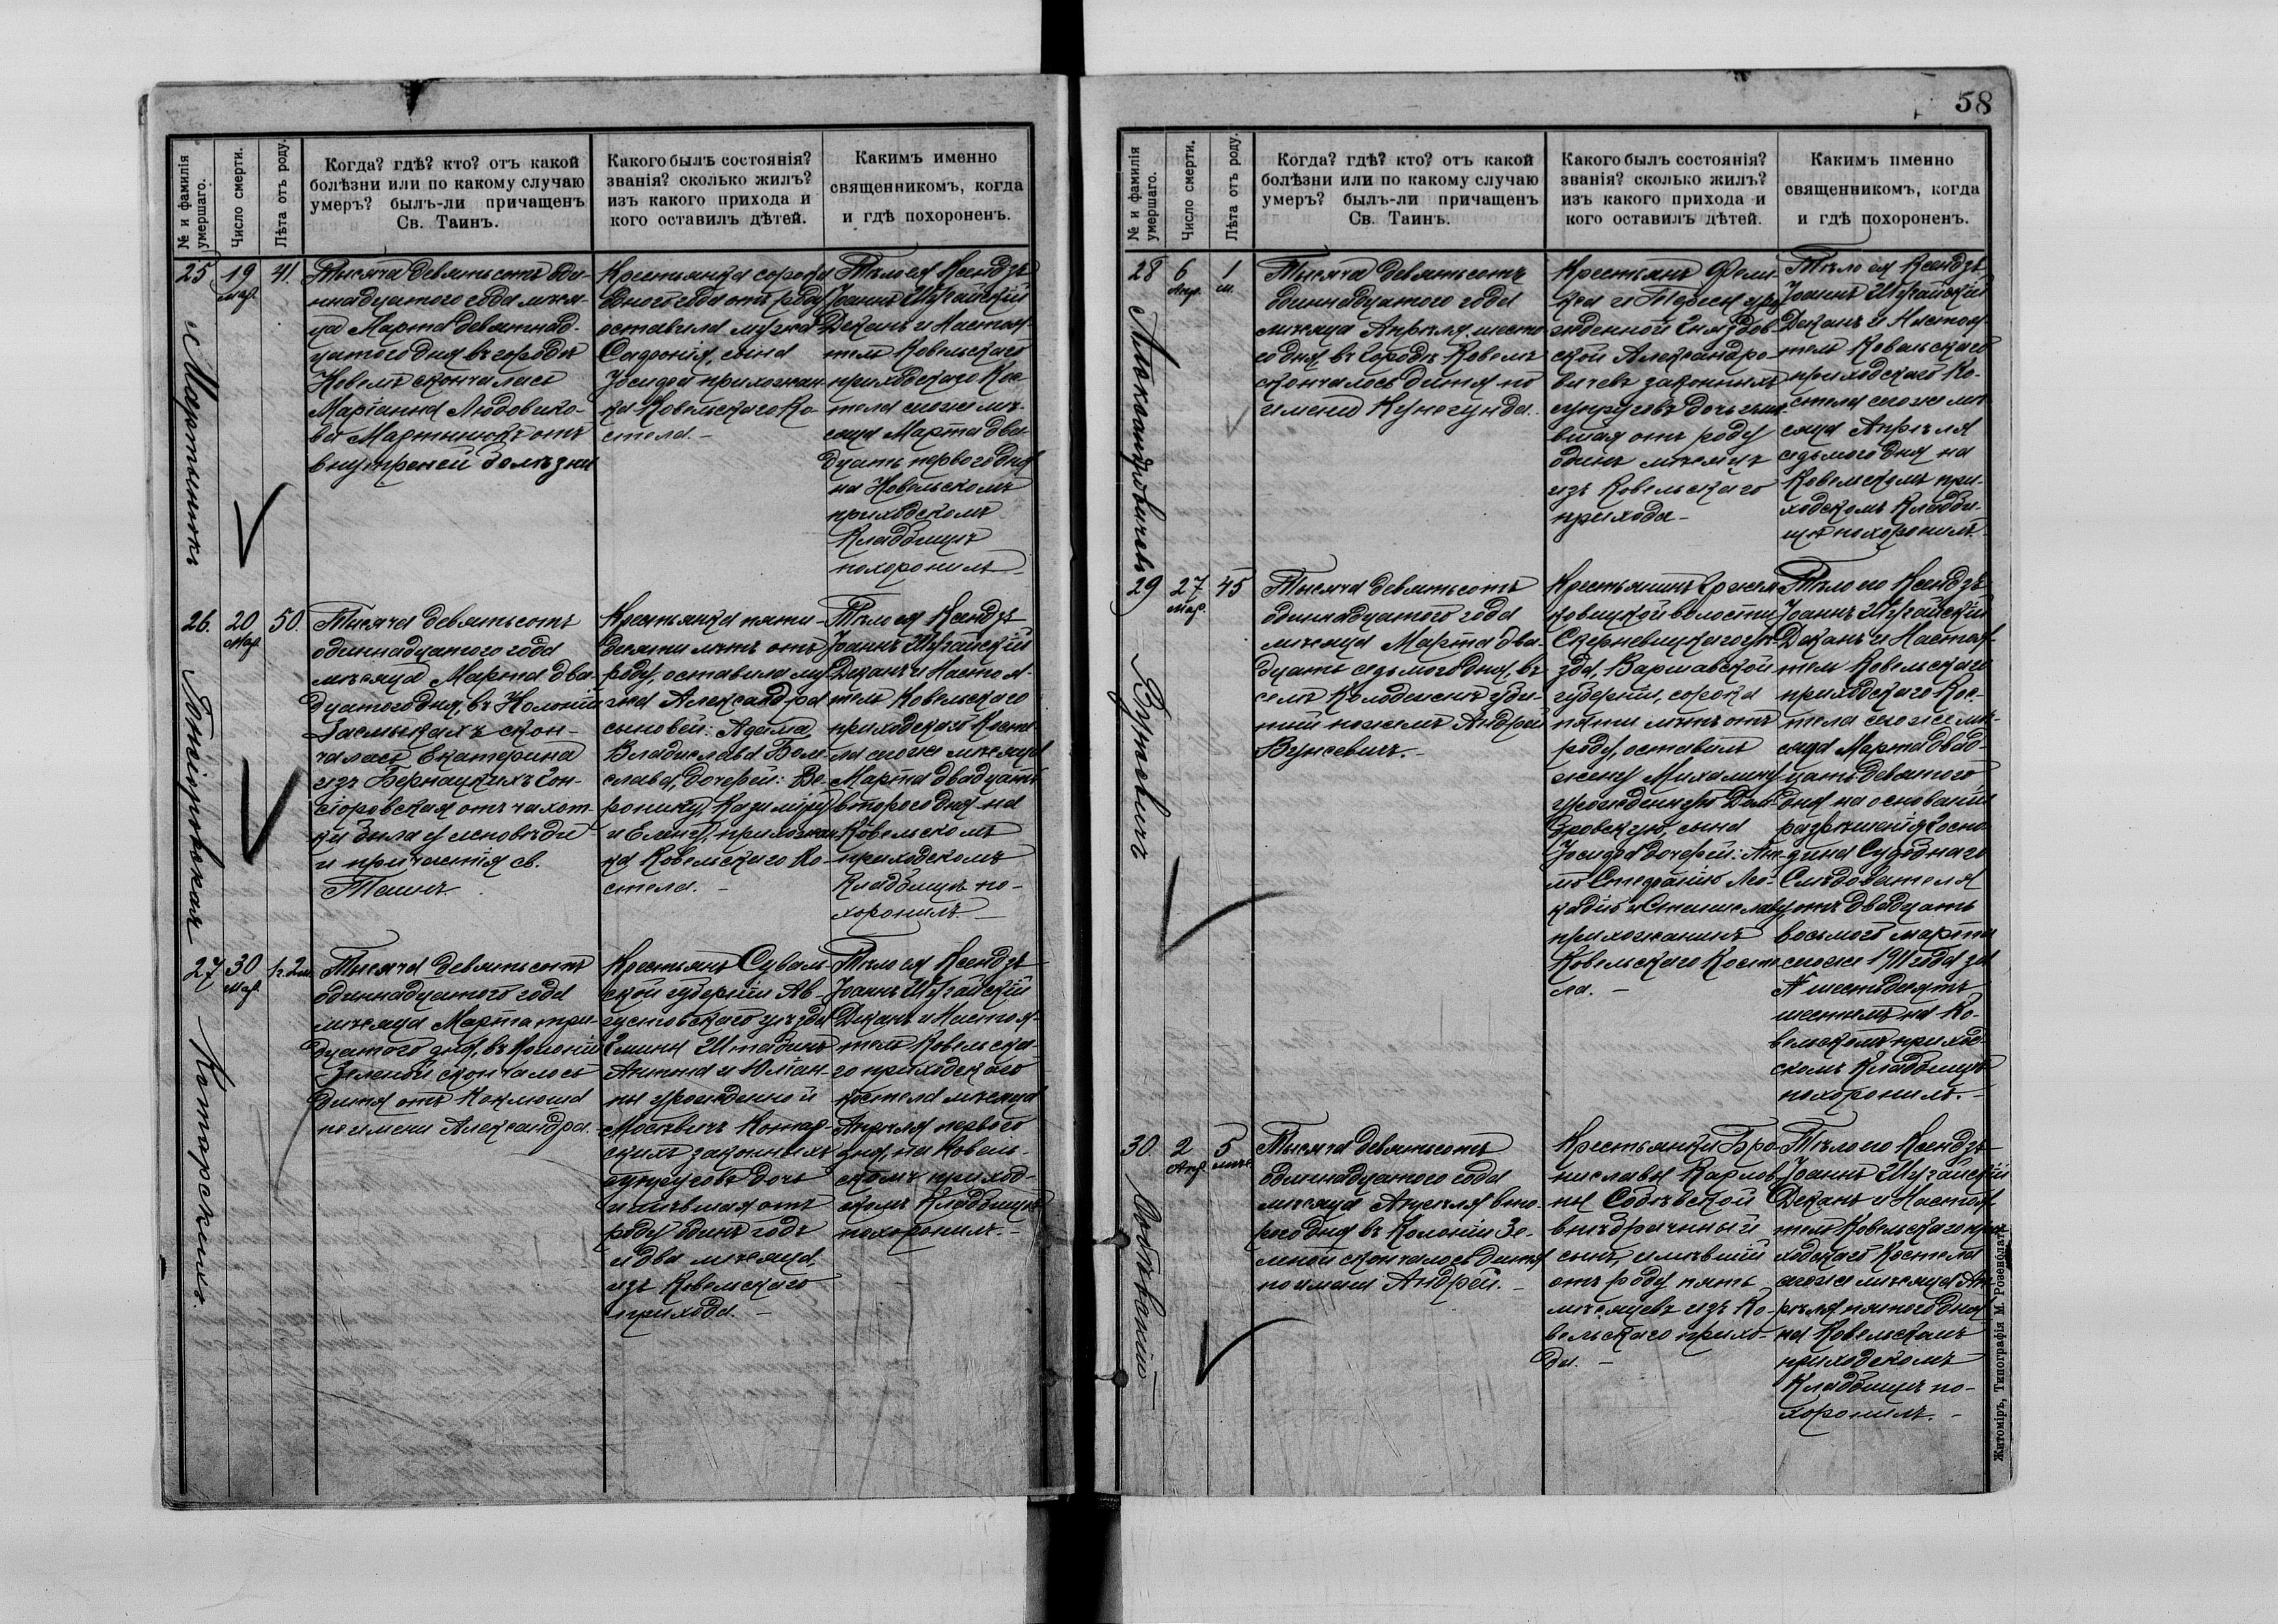 58
№ и фамилія умершаго.
Число смерти.
Лѣта отъ роду.
Когда? гдѣ? кто? отъ какой
болѣзни или по какому случаю
умеръ? былъ-ли причащенъ
Св. Таинъ.
Какого былъ состоянія?
званія? сколько жилъ?
изъ какого прихода и
кого оставилъ дѣтей.
Какимъ именно
священникомъ, когда
и гдѣ похороненъ.
25
Мартынюкъ
19
Мар.
41.
Тысяча девятьсотъ оди-
ннадцатого года мѣся-
ца Марта девятнад-
цатого дня, въ городѣ
Ковелѣ скончалась
Маріанна Людовико-
ва Мартынюкъ отъ
внутреней болѣзни
Крестьянка сорока
одного года отъ роду
оставила мужа
Сафронія, сына
Іосифа прихожан-
ка Ковельскаго Ко-
стела. –
Тѣло ея Ксендзъ
Іоаннъ
Деканъ и Настоя-
тель Ковельскаго
приходскаго Кос-
тела сего же мѣ-
сяца Марта два-
дцать перваго дня
на Ковельскомъ
приходскомъ
Кладбищѣ
похоронилъ –
26.
20
Мар.
50.
Тысяча девятьсотъ
одиннадцатого года
мѣсяца Марта два-
дцатого дня, въ Колоніи
Засмыкахъ скон-
чалась Екатерина
изъ Бернацкихъ Гон-
сіоровская отъ чахот-
ки была у исповѣди
и причастія св.
Таинъ.
Крестьянка пяти-
десяти лѣтъ отъ
роду, оставила му-
жа Александра
сыновей: Адама,
Владислава Боле-
слава, дочерей: Ве-
ронику, Казимиру
и Елену, прихожан-
ка Ковельскаго Ко-
стела. –
Тѣло ея Ксендзъ
Іоаннъ
Деканъ и Настоя-
тель Ковельскаго
приходскаго Косте-
ла сего же мѣсяца
Марта двадцать
второго дня на
Ковельскомъ
приходскомъ
Кладбищѣ по-
хоронилъ –
27
30
Мар.
1г. 2м.
Тысяча девятьсотъ
одиннадцатого года
мѣсяца Марта три-
дцатого дня, въ Колоніи
Зеленой скончалось
дитя отъ Коклюша
по имени Александра.
Крестьянъ Суваль-
ской губерніи Ав-
густовскаго уѣзда
Гмины Штабинъ
Антона и Юліан-
ны урожденной
скихъ законныхъ
супруговъ дочь
имѣвшая отъ
роду одинъ годъ
и два мѣсяца,
изъ Ковельскаго
прихода. –
Тѣло ея Ксендзъ
Іоаннъ
Деканъ и Настоя-
тель Ковельска-
го приходскаго
костела мѣсяца
Апрѣля перваго
дня, на Ковель-
скомъ приход-
скомъ Кладбищѣ
похоронилъ. –
№ и фамилія умершаго.
Число смерти.
Лѣта отъ роду.
Когда? гдѣ? кто? отъ какой
болѣзни или по какому случаю
умеръ? былъ-ли причащенъ
Св. Таинъ.
Какого былъ состоянія?
званія? сколько жилъ?
изъ какого прихода и
кого оставилъ дѣтей.
Какимъ именно
священникомъ, когда
и гдѣ похороненъ.
28
Александровичевъ
6
Апр.
1
м.
Тысяча девятьсотъ
одиннадцатого года
мѣсяца Апрѣля шесто-
го дня, въ Городѣ Ковелѣ
скончалось дитя по
имени Кунегунда.
Крестьянъ Фели-
кса и Терезы уро-
жденной
ской Александро-
вичевъ законныхъ
супруговъ дочь имѣ-
вшая отъ роду
одинъ мѣсяцъ
изъ Ковельскаго
прихода –
Тѣло ея Ксендзъ
Іоаннъ
Деканъ и Настоя-
тель Ковельскаго
приходскаго Ко-
стела сего же мѣ-
сяца Апрѣля
седьмого дня на
Ковельскомъ при-
ходскомъ Кладби-
щѣ похоронилъ. –
29
27
Мар.
45
Тысяча девятьсотъ
одиннадцатого года
мѣсяца Марта два-
дцать седьмого дня, въ
селѣ уби-
тый ножемъ Андрей
Крестьянинъ
волости
Скерневицкаго уѣ-
зда, Варшавской
губерніи, сорока
пяти лѣтъ отъ
роду, оставилъ
жену Михалину
урожденную Дом-
бровскую, сына
Іосифа дочерей:
Стефанію Лео-
кадію и Станиславу,
прихожанинъ
Ковельскаго Косте-
ла. –
Тѣло его Ксендзъ
Іоаннъ
Деканъ и Настоя-
тель Ковельскаго
приходскаго Кос-
тела сего же мѣ-
сяца Марта двад-
цать девятого
дня на основаніи
разрѣшенія Госпо-
дина Судебнаго
Слѣдователя
отъ двадцать
восьмого марта
сего же 1911 года за
№ шестьдесятъ
шестымъ на Ко-
вельскомъ приход-
скомъ Кладбищѣ
похоронилъ. –
30.
2
Апр.
5
мѣс.
Тысяча девятьсотъ
одиннадцатого года
мѣсяца Апрѣля вто-
рого дня въ Колоніи Зе-
леной скончалось дитя
по имени Андрей. –
Крестьянки Бро-
ниславы Карлов-
ны
внѣбрачный
сынъ, имѣвшій
отъ роду пять
мѣсяцевъ изъ Ко-
вельскаго прихо-
да. –
Тѣло его Ксендзъ
Іоаннъ
Деканъ и Настоя-
тель Ковельскаго при-
ходскаго Костела
сего же мѣсяца Ап-
рѣля пятого дня
на Ковельскомъ
приходскомъ
Кладбищѣ по-
хоронилъ. –
Житоміръ, Типографія М. Розенблатъ